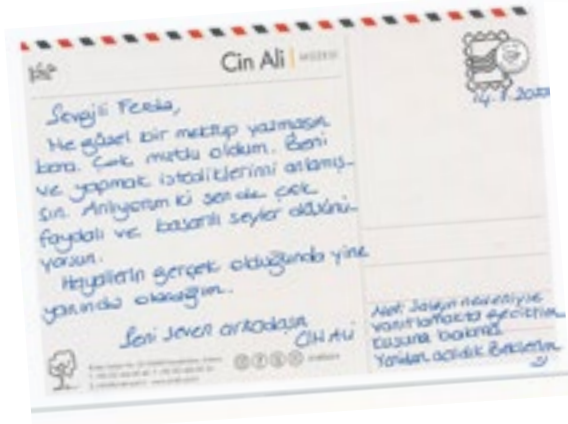 Cin Ali | MÜZESİ
14.1.2022
Sevgili Ferda,
Ne güzel bir mektup yazmışsın
bana. Çok mutlu oldum. Beni
ve yapmak istediklerimi anlamış-
sın. Anlıyorum ki sen de çok
faydalı ve başarılı şeyler düşünü-
yorsun.
Hayallerin gerçek olduğunda yine
yanında olacağım.
Seni seven arkadaşın
CİN ALİ
Not: Salgın nedeniyle
yanıtlamakta geciktim
kusura bakma.
Yeniden açıldık. Beklerim